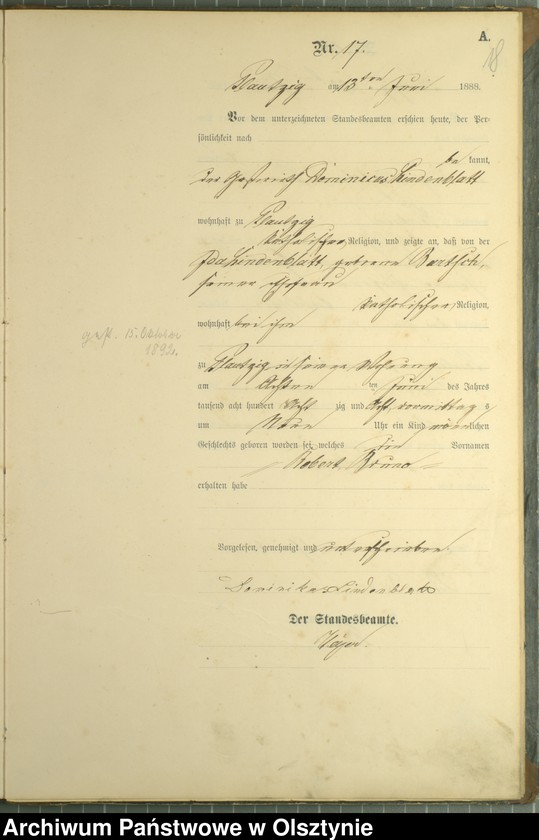 A.
18
Nr. 17.
Plautzig am 13ten Juni 1888.
Vor dem unterzeichneten Standesbeamten erschien heute, der Per-
sönlichkeit nach
be kannt,
der Dominicus Lindenblatt
wohnhaft zu Plautzig
katholischer Religion, und zeigte an, daß von der
Ida Lindenblatt, geborene Bartsch,
seiner Ehefrau
katholischer Religion,
wohnhaft bei ihm
gest. 15. Oktober
1892.
zu Plautzig in seiner Wohnung
am Achten ten Juni des Jahres
tausend acht hundert Acht zig und Acht vormittags
um Neun Uhr ein Kind männlichen
Geschlechts geboren worden sei, welches die Vornamen
Robert Bruno
erhalten habe
Vorgelesen, genehmigt und unterschrieben
Lindenblatt
Der Standesbeamte.
Archiwum Państwowe w Olsztynie